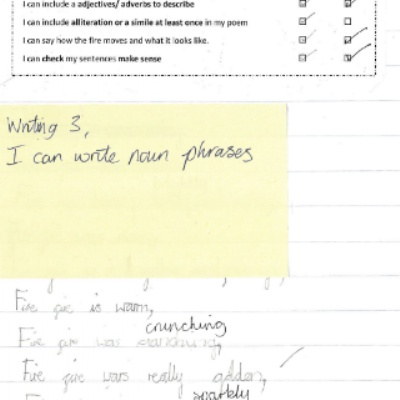 I can include a adjectives/ adverbs to describe
I can include alliteration or a simile at least once in my poem
I can say how the fire moves and what it looks like.
I can check my sentences make sense
Writing 3,
I can write noun phrases
Fire fire is warm,
crunching
Fire fire was
Fire fire wars really golden,
sparkly